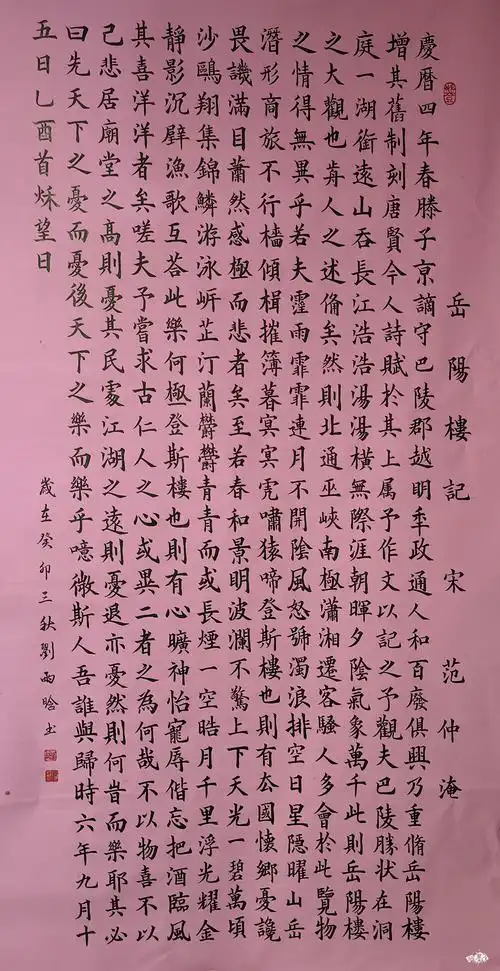 岳陽樓記 宋 范仲淹
慶曆四年春滕子京謫守巴陵郡越明秊政通人和百廢俱興乃重脩岳陽樓
增其舊制刻唐賢今人詩賦於其上属予作文以記之予觀夫巴陵勝状在洞
庭一湖銜遠山吞長江浩浩湯湯橫無際涯朝暉夕陰氣象萬千此則岳陽樓
之大觀也歬人之述俻矣然則北通巫峽南極瀟湘遷客騷人多會於此覽物
之情得無異乎若夫霪雨霏霏連月不開陰風怒號濁浪排空日星隱曜山岳
潛形商旅不行檣傾楫摧簿暮冥冥虎嘯猿啼登斯樓也則有厺國懷鄉憂讒
畏譏滿目蕭然感極而悲者矣至若春和景明波瀾不驚上下天光一碧萬頃
沙鷗翔集錦鱗游泳岸芷汀蘭鬱鬱青青而或長煙一空皓月千里浮光耀金
靜影沉璧漁歌互荅此樂何極登斯樓也則有心曠神怡寵辱偕忘把酒臨風
其喜洋洋者矣嗟夫予嘗求古仁人之心或異二者之為何哉不以物喜不以
己悲居廟堂之高則憂其民處江湖之遠則憂退亦憂然則何旹而樂耶其必
曰先天下之憂而憂後天下之樂而樂乎噫微斯人吾誰與歸時六年九月十
五日乙酉首秌望日
歲在癸卯三秋劉雨晗书